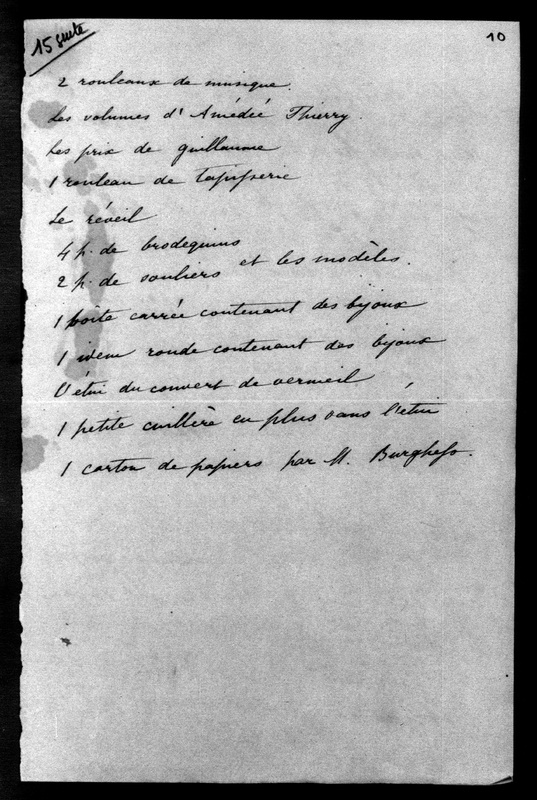 15 suite
10
2 rouleaux de musique.
Les volumes d' Amédée Thierry.
Les prix de guillaume
1 rouleau de tapisserie
Le réveil
4 p. de brodequins
2 p. de souliers et les modèles.
1 boîte carrée contenant des bijoux
1 idem ronde contenant des bijoux
L'étui du couvert de vermeil
1 petite cuillère en plus dans l'étui
1 carton de papiers par M.